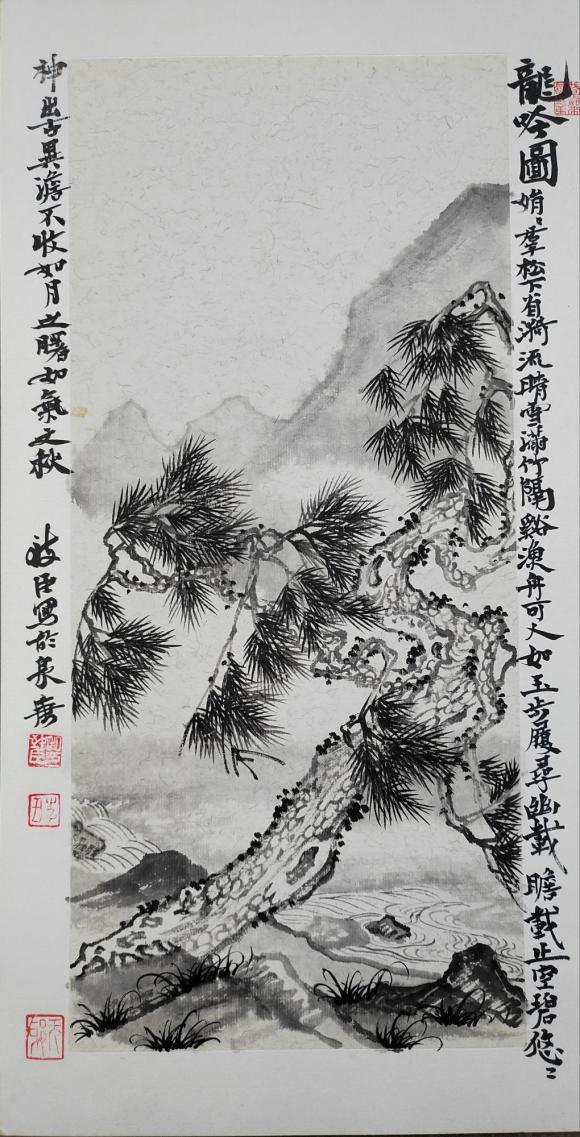 龍吟圖 娟〻羣松下有漪流晴雪滿竹隔谿漁舟可人如玉步履尋幽載瞻載止空碧悠〻
神出古異澹不收如月之曙如氣之秋
臣寫於泉